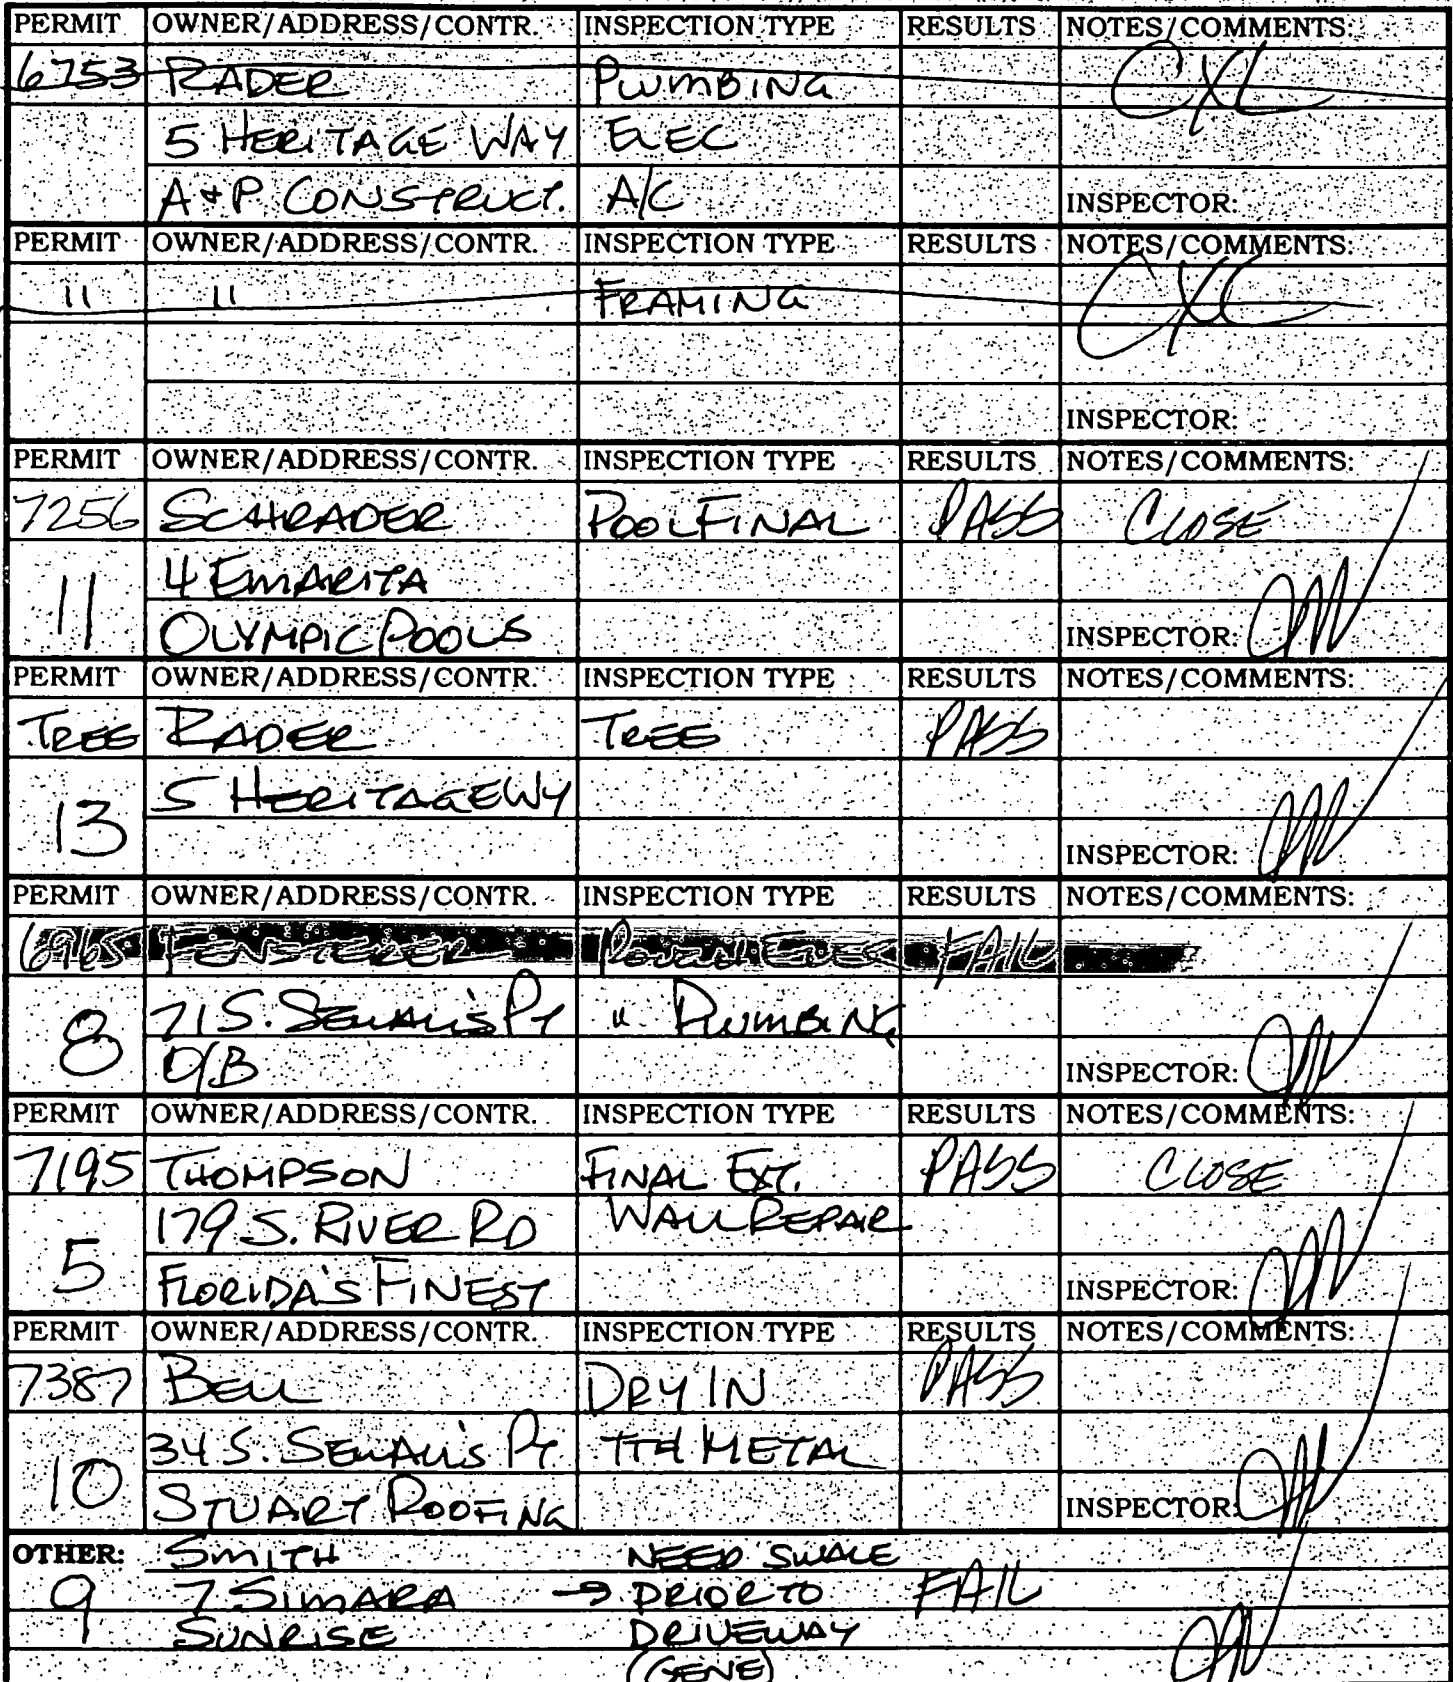 PERMIT OWNER/ADDRESS/CONTR. INSPECTION TYPE RESULTS NOTES/COMMENTS:
6753 RADER PLUMBING CXL
5 HERITAGE WAY ELEC
A+P CONSTRUCT. A/C INSPECTOR:
PERMIT OWNER/ADDRESS/CONTR. INSPECTION TYPE RESULTS NOTES/COMMENTS:
" " FRAMING CXL
INSPECTOR:
PERMIT OWNER/ADDRESS/CONTR. INSPECTION TYPE RESULTS NOTES/COMMENTS:
7256 SCHRADER POOL FINAL PASS CLOSE
11 4 EMARITA
OLYMPIC POOLS INSPECTOR:
PERMIT OWNER/ADDRESS/CONTR. INSPECTION TYPE RESULTS NOTES/COMMENTS:
TREE RADER TREE PASS
5 HERITAGE WY
13 INSPECTOR:
PERMIT OWNER/ADDRESS/CONTR. INSPECTION TYPE RESULTS NOTES/COMMENTS:
6965 FENSTERER ROUGH ELEC FAIL
8 71 S. SEWALL'S PT " PLUMBING
O/B INSPECTOR:
PERMIT OWNER/ADDRESS/CONTR. INSPECTION TYPE RESULTS NOTES/COMMENTS:
7195 THOMPSON FINAL EXT. PASS CLOSE
179 S. RIVER RD WALL REPAIR
5 FLORIDA'S FINEST INSPECTOR:
PERMIT OWNER/ADDRESS/CONTR. INSPECTION TYPE RESULTS NOTES/COMMENTS:
7387 BELL DRY IN PASS
34 S. SEWALL'S PT TTH METAL
10 STUART ROOFING INSPECTOR:
OTHER: SMITH NEED SWALE
9 7 SIMARA → PRIOR TO FAIL
SUNRISE DRIVEWAY
(GENE)